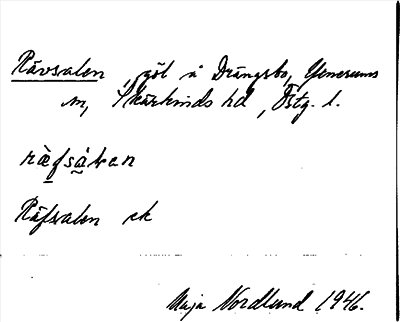 Rävsalen, göl å Drängsbo, Yxnerums
sn, Skärkinds hd, Östg. l.
ràfsàlen
Räfsalen ek
Maja Nordlund 1946.